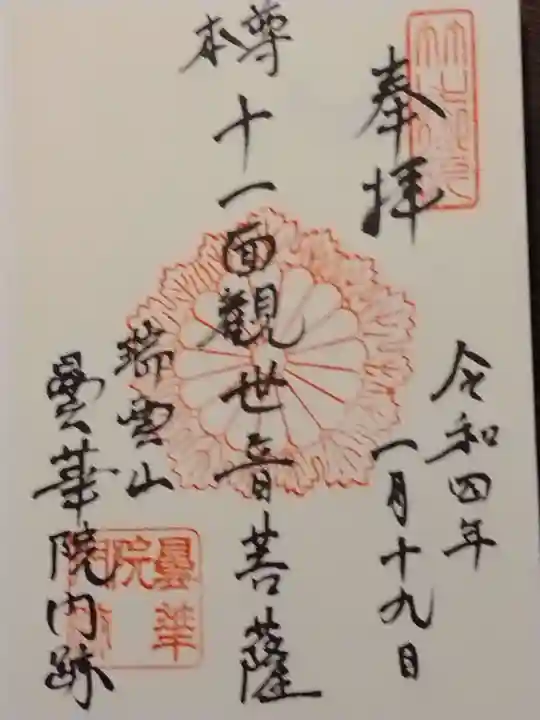 奉拝
令和四年
一月十九日
本尊
十一面觀世音菩薩
瑞雲山
曇華院門跡
曇華
院門跡